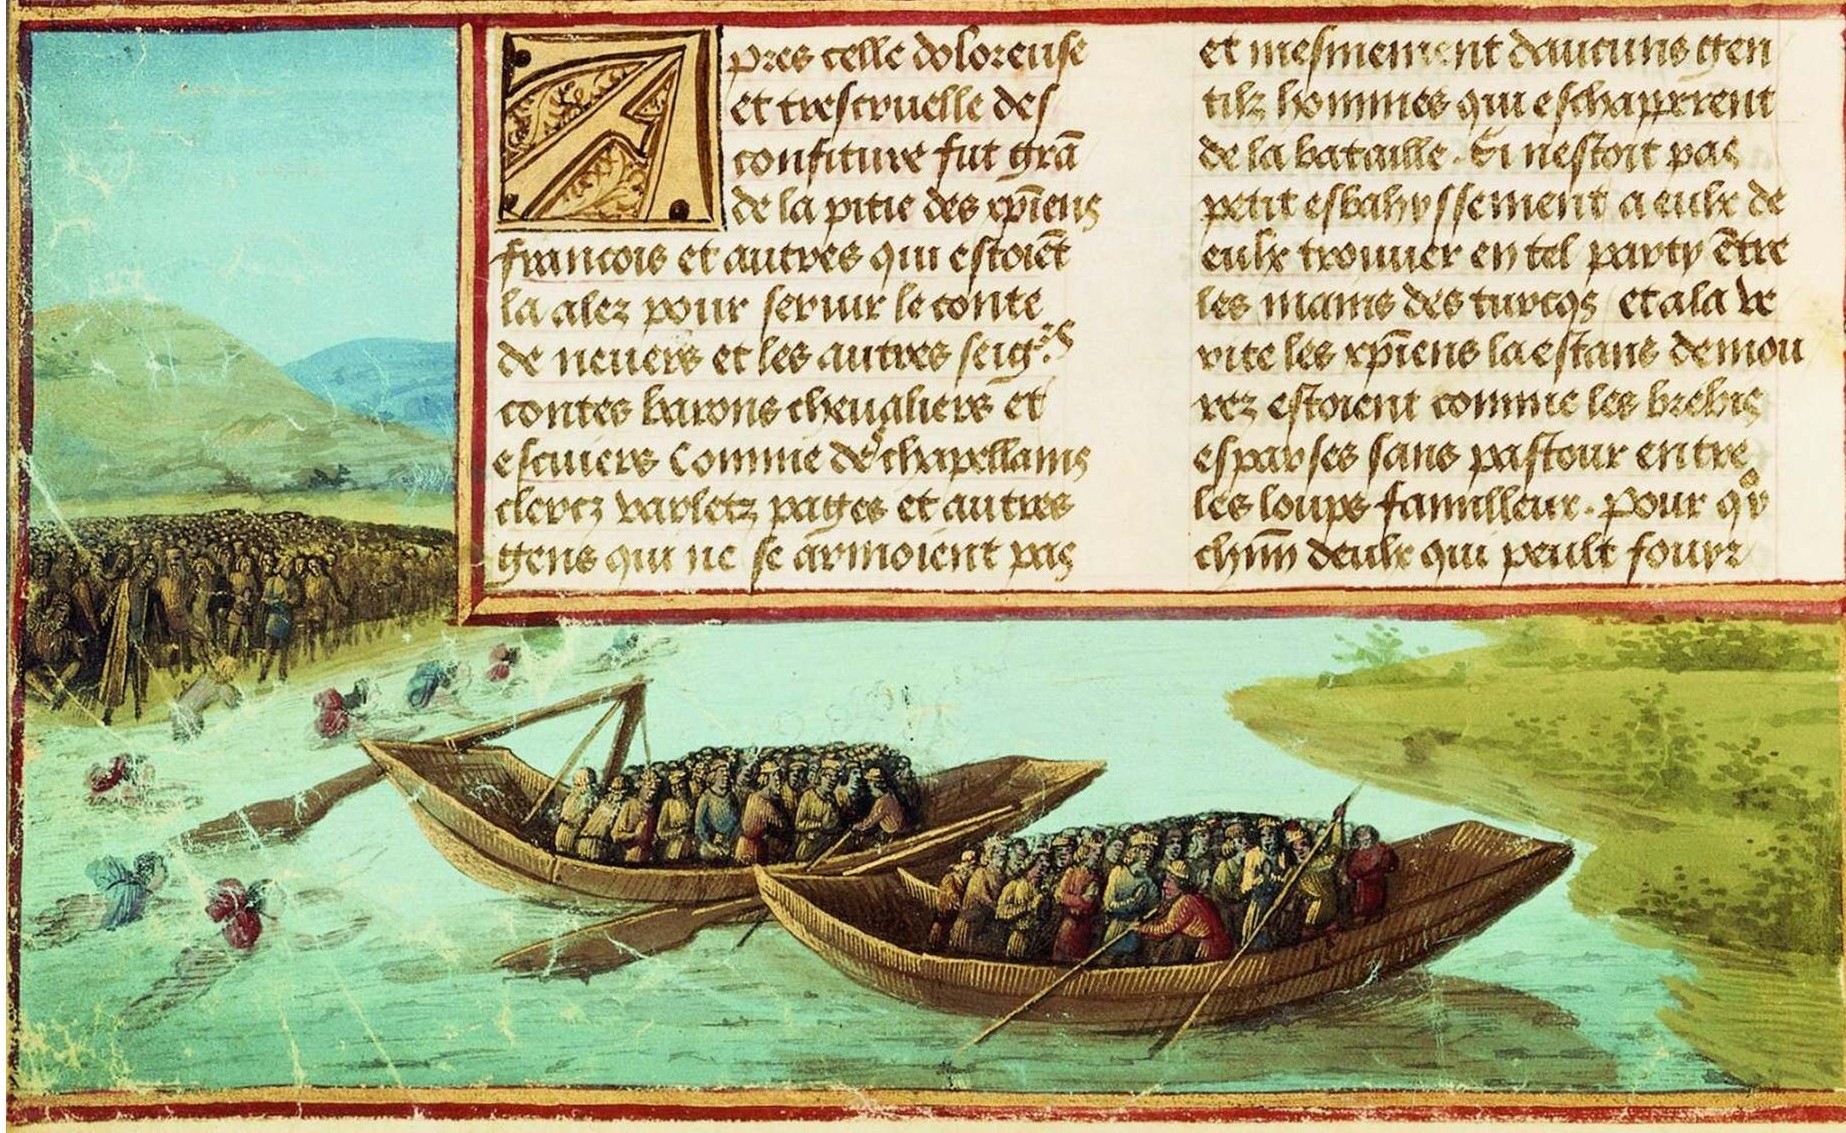 Apres celle doloreuse
et trescruelle des
confiture fut grā
de la pitie des xp̄iens
francois et autres qui estoiēt
la alez pour seruir le conte
de neuers et les autres seigrs
contes barons cheualiers et
escuiers Comme de chapellains
clercz varletz pages et autres
gens qui ne se armoient pas
et mesmement daucuns gen
tilz hommes qui eschapperent
de la bataille. Si nestoit pas
petit esbahyssement a eulx de
eulx trouuer en tel party ētre
les mains des turcqs et a la ve
rite les xp̄iens la estans demou
rez estoient comme les brebis
esparses sans pastour entre
les loups famılleux. Pour qoy
chūn deulx qui peult fouyr